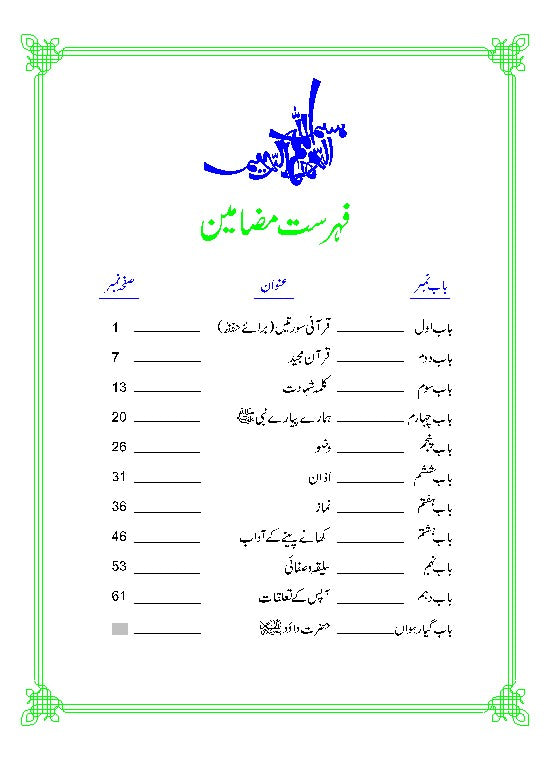 بسم اللہ الرحمن الرحیم
فہرست مضامین
باب نمبر عنوان صفحہ نمبر
باب اول ________ قرآنی سورتیں (برائے حفظ) ________ 1
باب دوم قرآن مجید ________ 7
باب سوم ________ کلمہ شہادت ________ 13
باب چہارم ________ ہمارے پیارے نبی ﷺ ________ 20
باب پنجم ________ وضو ________ 26
باب ششم ________ اذان ________ 31
باب ہفتم ________ نماز ________ 36
باب ہشتم ________ کھانے پینے کے آداب ________ 46
باب نہم ________ سلیقہ و صفائی ________ 53
باب دہم ________ آپس کے تعلقات ________ 61
باب گیارہواں ________ حضرت داؤد ________